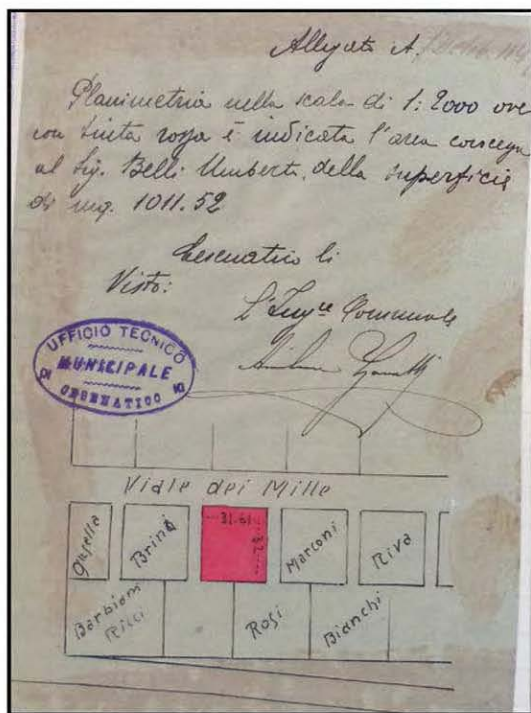 Allegato A.
Planimetria nella scala di 1:2000 ove
con tinta rossa è indicata l'area concessa
al Sig. Belli Umberto, della superficie
di mq. 1011.52
Cesenatico li
Visto:
L'Ingre Comunale
UFFICIO TECNICO
MUNICIPALE
DI CESENATICO
Viale dei Mille
31.61
32
Brina
Marconi
Riva
Barbiani
Ricci
Rosi
Bianchi